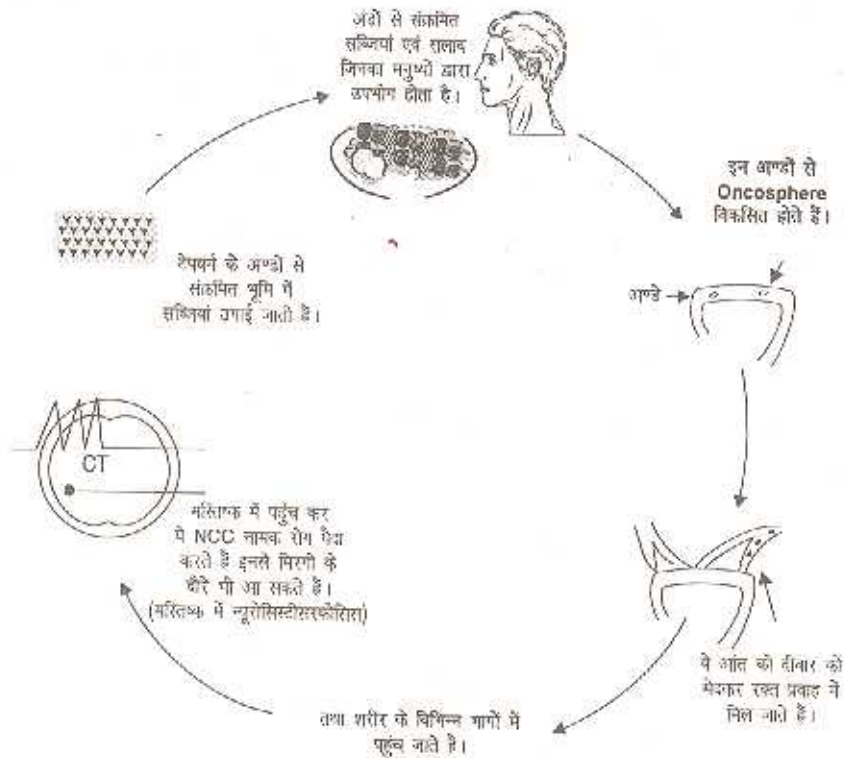 अंडों से संक्रमित
सब्जियां एवं सलाद
जिनका मनुष्यों द्वारा
उपभोग होता है।
इन अण्डों से
Oncosphere
विकसित होते हैं।
अण्डे
ये आंत की दीवार को
भेदकर रक्त प्रवाह में
मिल जाते हैं।
तथा शरीर के विभिन्न भागों में
पहुंच जाते है।
CT
मस्तिष्क में पहुँच कर
ये NCC नामक रोग पैदा
करते हैं इनसे मिरगी के
दौरे भी आ सकते हैं।
(मस्तिष्क में न्यूरोसिस्टीसरकोसिस)
टेपवर्म के अण्डों से
संक्रमित भूमि में
सब्जियां उगाई जाती हैं।